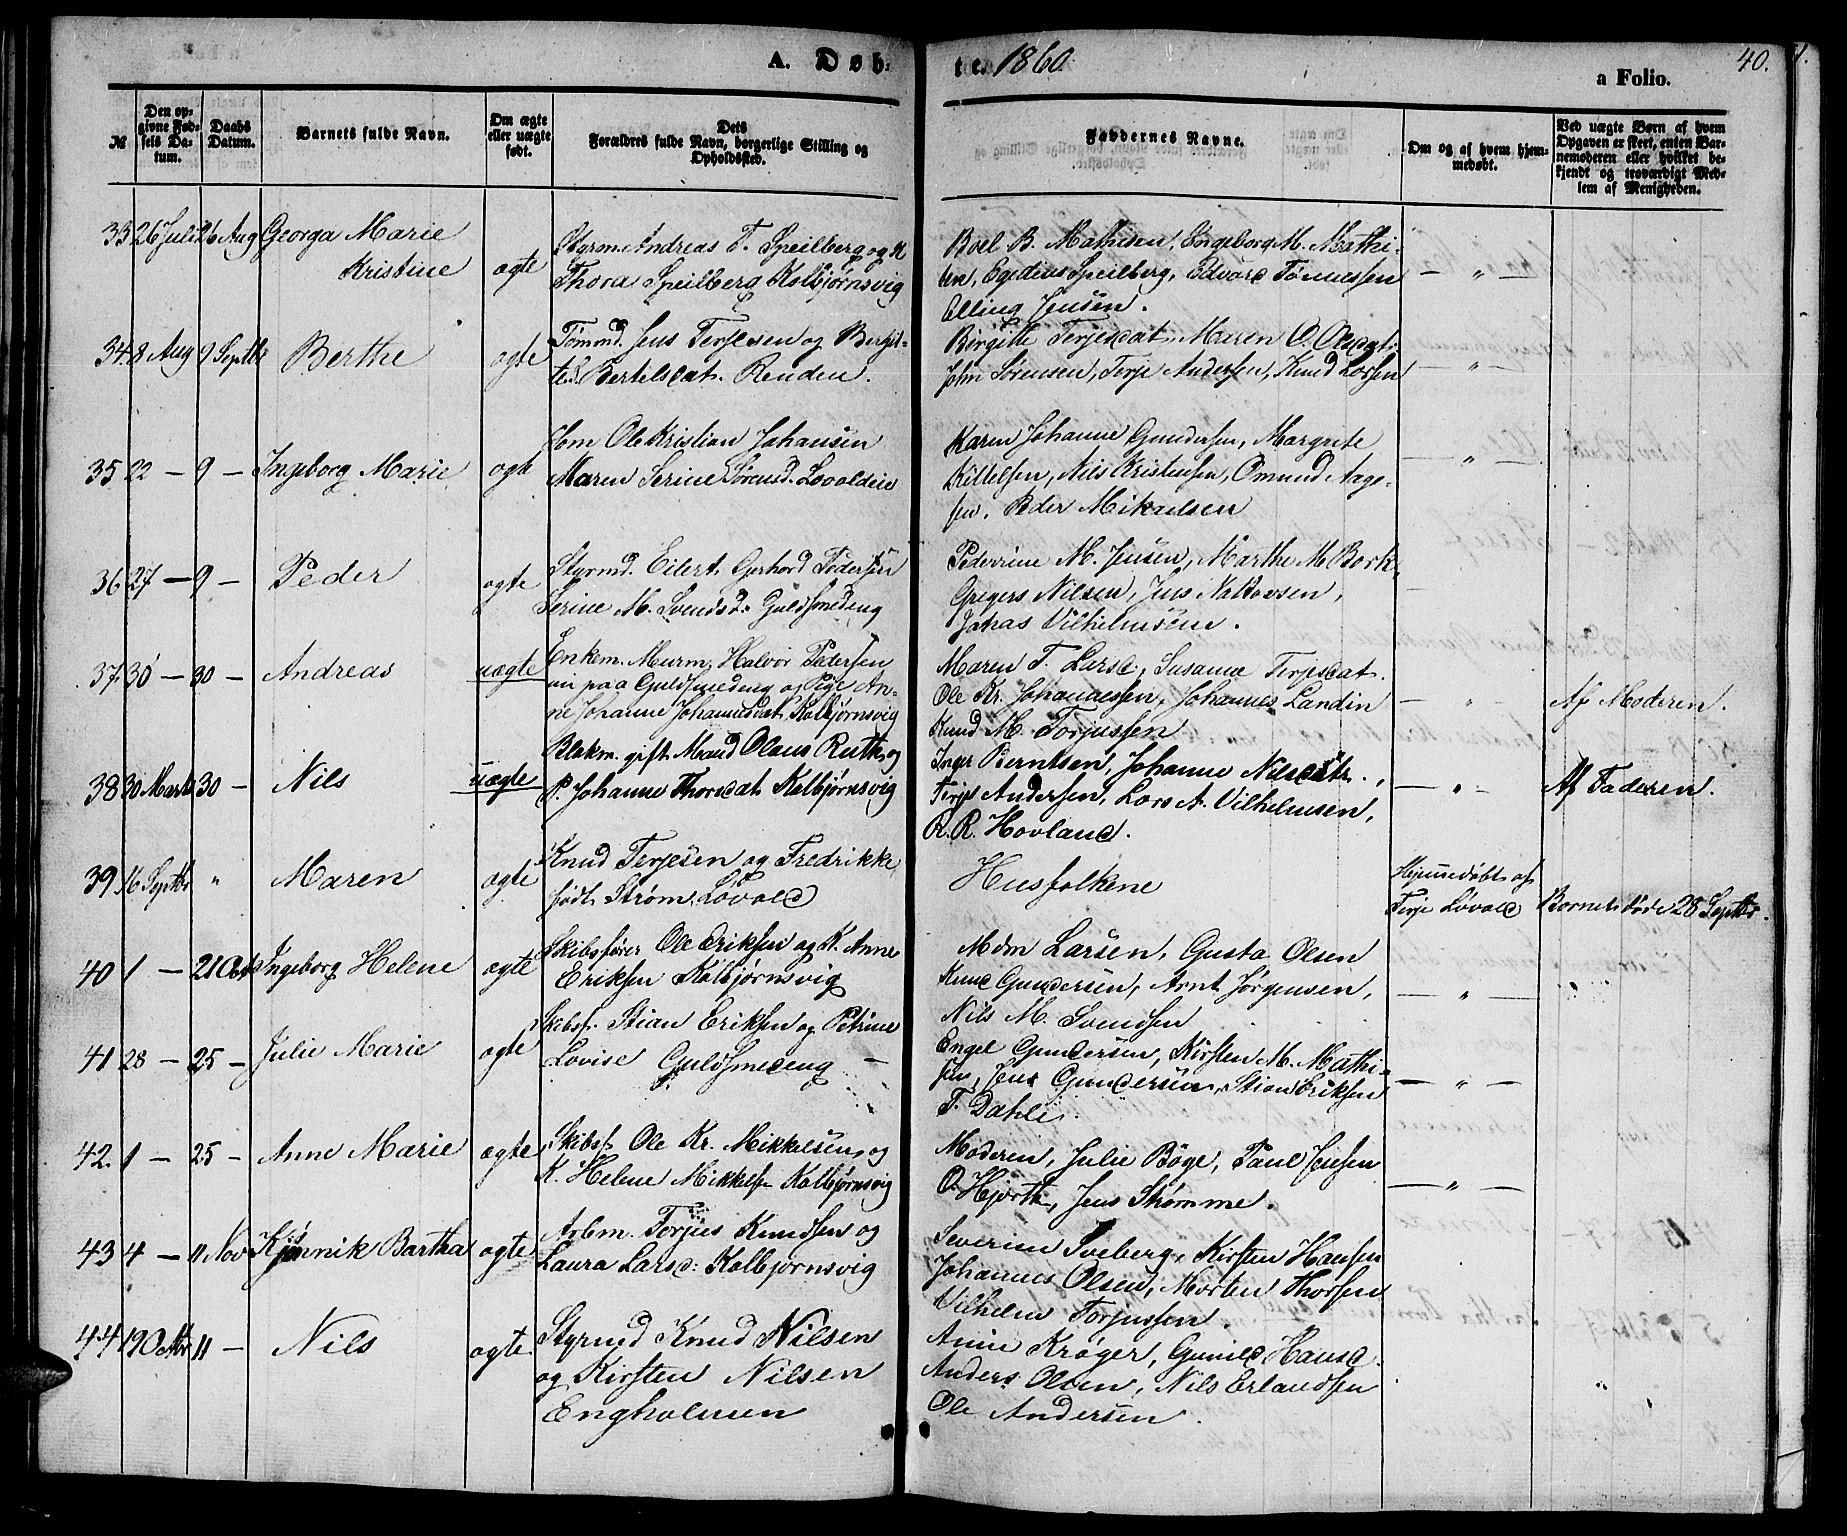 A. Døb-
te. 1860.
a Folio.
40.
№
Den op-
givne Fød-
sels Da-
tum.
Daabs
Datum.
Barnets fulde Navn.
Om ægte
eller uægte
født.
Dets
Forældres fulde Navn, borgerlige Stilling og
Opholdssted.
Faddernes Navne.
Om og af hvem hjem-
medøbt.
Ved uægte Børn af hvem
Opgaven er skeet, enten Bar-
nemoderen eller hvilket be-
kjendt og troværdigt Med-
lem af Menigheden.
33 26 Juli 26 Aug Georga Marie
Kristine
ægte
Styrm. Andreas T. Speilberg og K
Thora Speilberg Kolbjørnsvig
Boel B. Mathisen, Ingeborg M. Mathi-
sen, Egedius Speilberg, Edvard Tønnessen
Elling Jensen.
— " —
34 8 Aug 9 Septbr Berthe ægte
Tømmd. Jens Terjesen og Bergit-
te Bertelsdat. Renden.
Birgitte Terjesdat. Maren O. Olsdat.
John Sørensen, Terje Andersen, Knud Larsen
— " —
35 22 — 9 — Ingeborg Marie ægte
Jom Ole Kristian Johansen
Maren Serine Sørensd. Lovoldeie
Karen Johanne Gundersen, Margrete
Kittelsen, Nils Kristensen, Omund Aage-
sen. Peder Mikaelsen
— " —
36 27 — 9 — Peder ægte
Styrmd. Eilert Gerhard Pedersen
Serine M. Svendsd. Guldsmedeng
Pederrine M. Jensen, Marthe M. Bork,
Gregers Nilsen, Jens
Johas Vilhelmsen.
37. 30 — 30 — Andreas uægte
Enkem. Murm. Halvor Pedersen
nu paa Guldsmedeng og Pige An-
ne Johanne Johannesdat. Kolbjørnsvig
Maren T. Larsd., Susanne Terjesdat.
Ole Kr. Johannessen, Johannes Landin
Knud M. Torjussen
— " —
Af Moderen.
38 30 Marts 30 — Nils uægte
Blekm. gift Mand Olaus Ruth og
P. Johanne Thorsdat Kolbjørnsvig
Inger Berntsen, Johanne Nilsdatr.,
Terje Andersen, Lars A. Vilhelmsen,
R. R. Hovland.
— " —
Af Faderen.
39 16 Septbr " Maren ægte
Knud Terjesen og Fredrikke
født Strøm, Lovold
Husfolkene
Hjemmedøbt af
Terje Lovold
Barnet døde 28 Septbr.
40 1 — 21 Octb Ingeborg Helene ægte
Skibsfører Ole Eriksen og K. Anne
Eriksen Kolbjørnsvig
Mdm Larsen, Gusta Olsen
Knud Gundersen, Arnt Jørgensen,
Nils M. Svendsen
— " —
41 28 — 25 — Julie Marie ægte
Skibsf. Stian Eriksen og Petrine
Lovise Guldsmedeng —
Engel Gundersen, Kirsten M. Mathi-
sen, Jens Gundersen, Stian Eriksen
T. Dahli.
— " —
42. 1 — 25 — Anne Marie ægte
Skibsf. Ole Kr. Mikkelsen og
K. Helene Mikkelsen Kolbjørnsvig
Moderen, Julie Bøge, Paul Jensen
O. Hjorth, Jens Strømme.
— " —
43 4 — 11 Nov Kjønnik Bartha ægte
Arbm. Torjus Knudsen og
Laura Larsd: Kolbjørnsvig
Severine Sveberg, Kirsten Hansen
Johannes Olsen, Morten Thorsen
Vilhelm Torjussen.
44 19 Octbr 11 — Nils ægte
Styrmd Knud Nilsen
og Kirsten Nilsen
Engholmen
Anne Krøger, Gunild Hansd.
Anders Olsen, Nils Erlandsen
Ole Andersen.
"